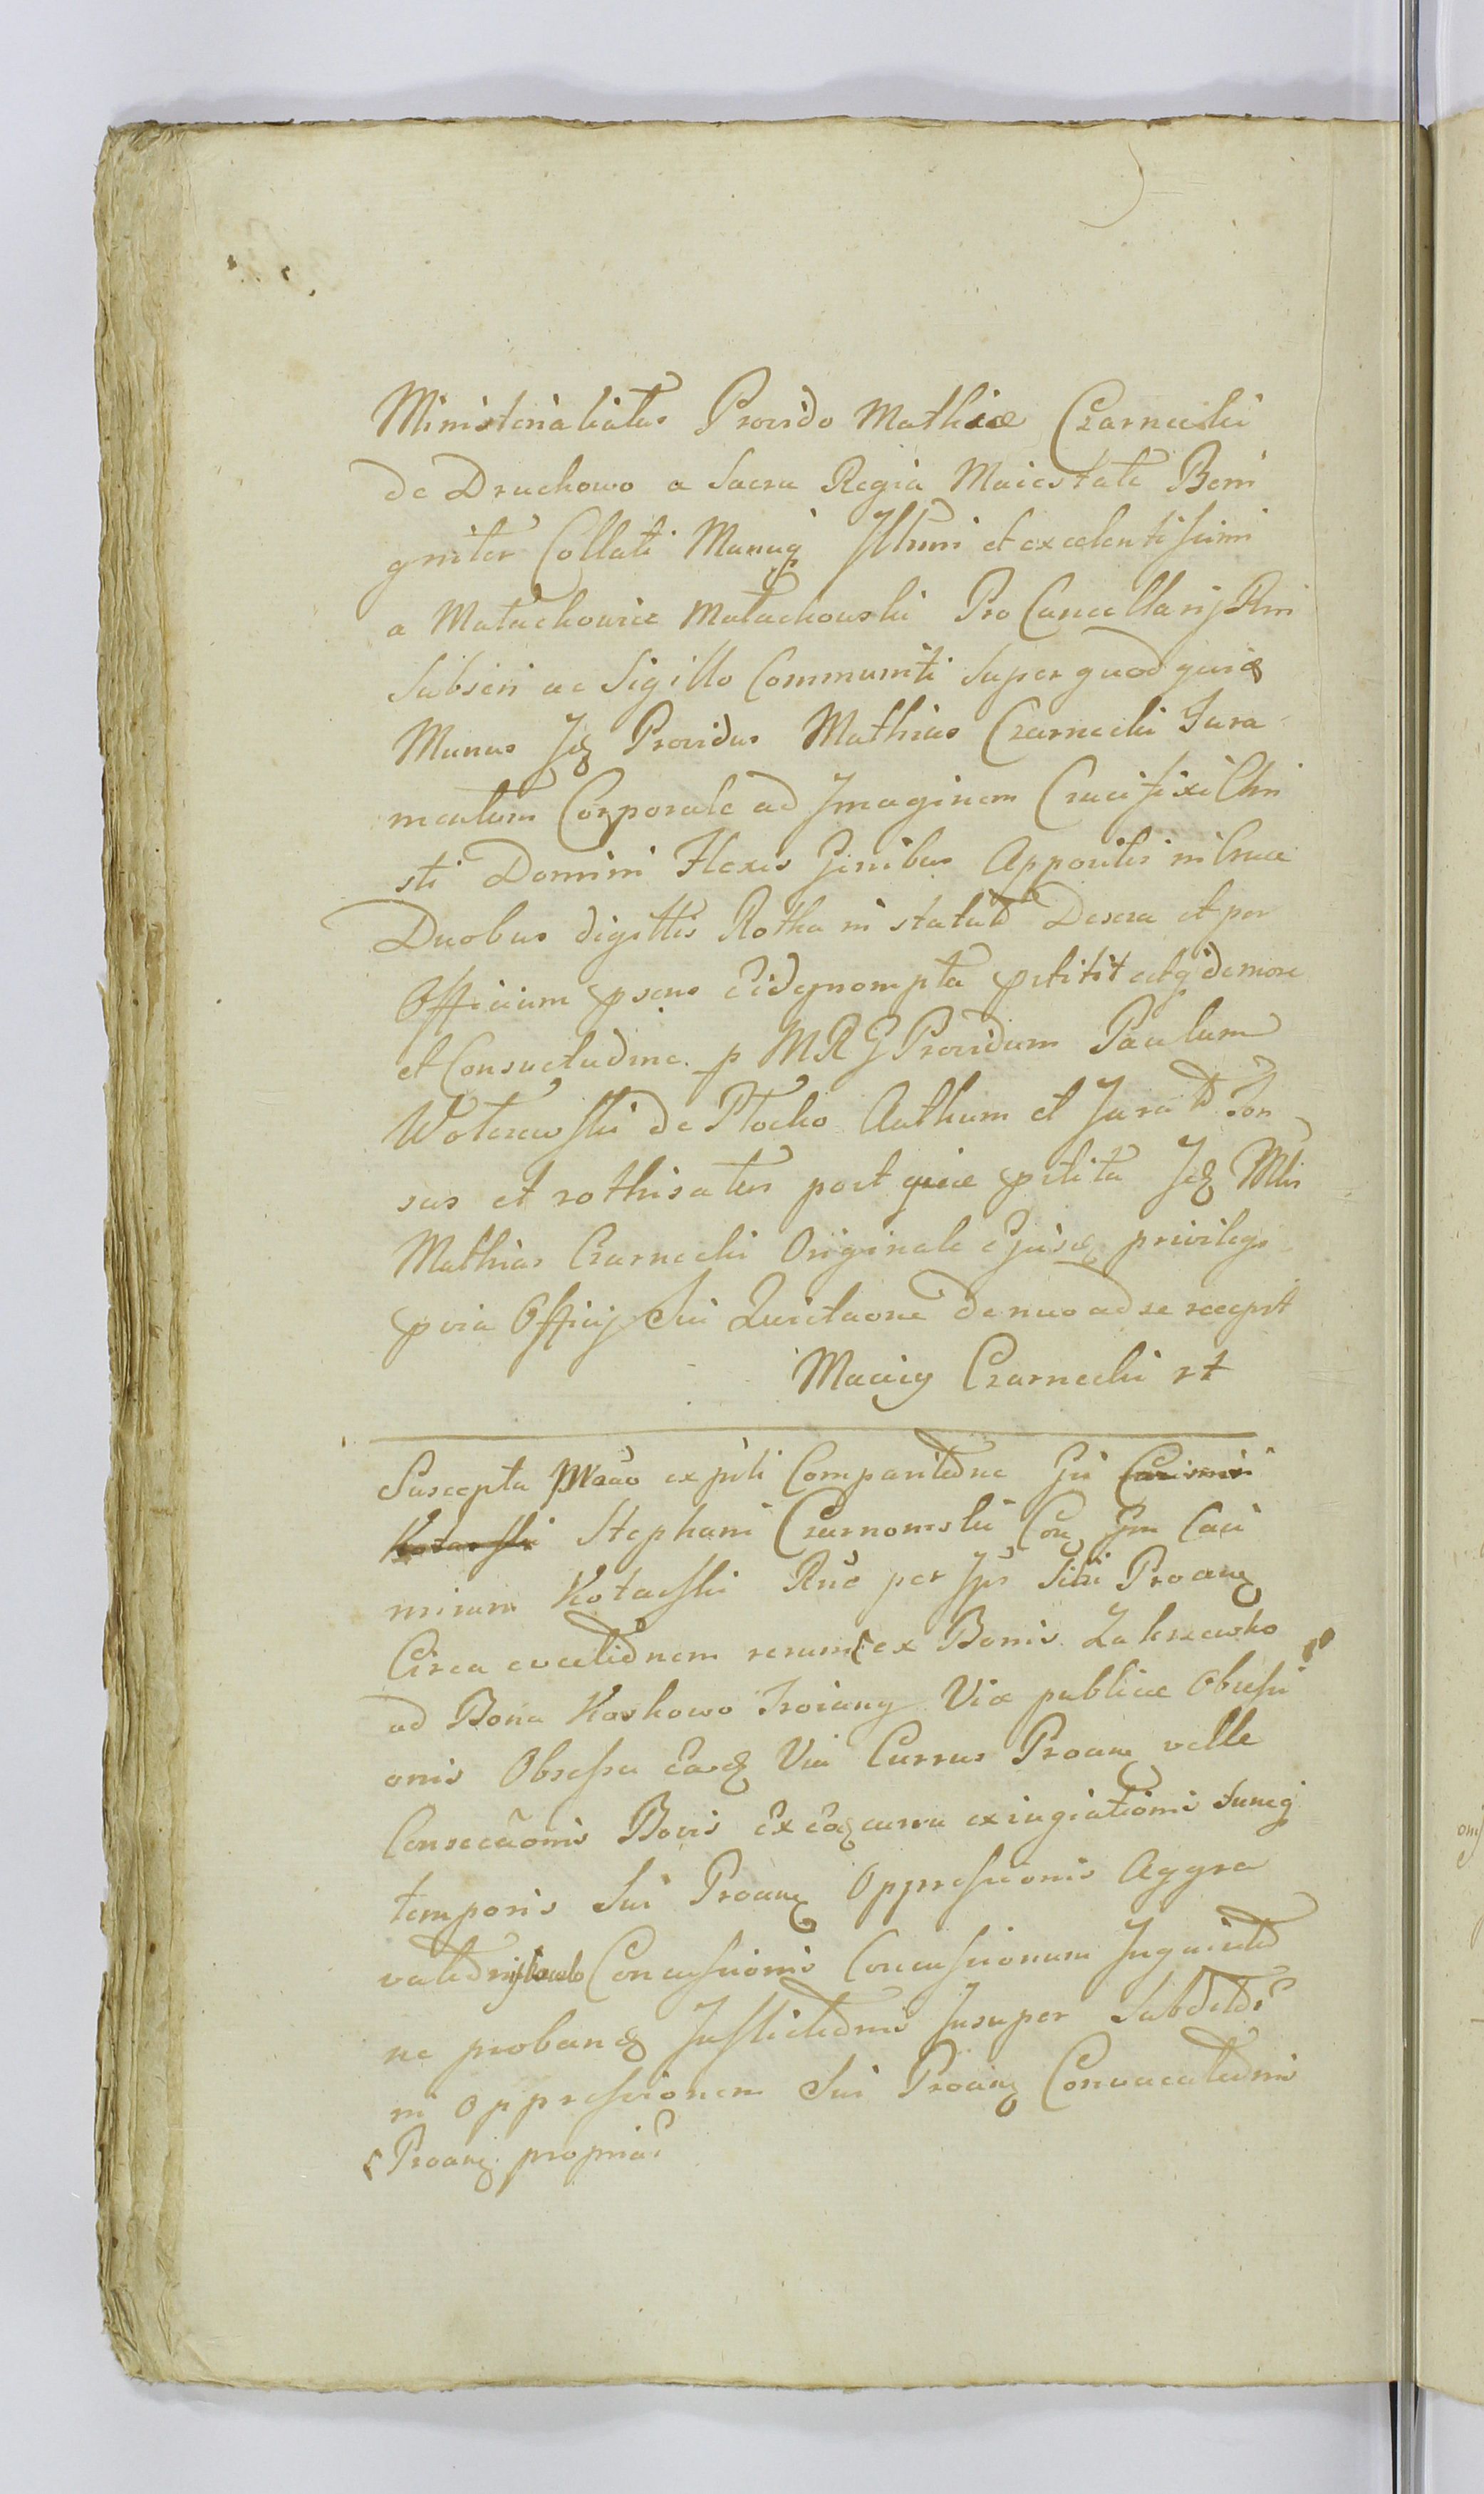 Ministerialatus Provido Mathiæ Czarnecki
de Druchowo a Sacra Regia Maiestate Beni
gniter Collati Manuq Illmi et excelentissimi
a Małachowice Małachowski Pro Cancellarij Rni
Subscri ac Sigillo Communiti Super quod quid
Munus Idq Providus Mathias Czarnecki Jura
mentum Corporale ad Imaginem Crucifixi Chri
sti Domini Flexis Genibus Appositis in Cruce
Duobus digittis Rotha in statut Descra et per
Officium psens Eidq prompta pstitit de more
et Consuetudine p MRG Providum Paulum
de Płocko Authum et Jurat Ton
sus et rothisatus post quæ pstita Idq Mlis
Mathias Czarnecki Originale Ejusdq privilegi
pvia Officij Sui Quietaone denuo ad se recepit
Maciey Czarnecki
Suscepta ex pti Comparitione Gsi
Stephani Czarnomski Con Gsm Casi
mirum Kotarski per Ips Sibi Proanq
Circa evectionem rerum ex Bonis Zakrzewko
ad Bona Koskowo Troiany Viæ publicæ Obsessi
onis Obsessa Eadq Via Currus Proanq velle
Consecaonis Bovis Ex Eoq curru exiugiationis sumq
temporis Sui Proanq Oppressionis Aggra
vationis Concussionis Concussionum
ne proban Inflictionis Insuper Subdit
in oppressionem Sui Proanq Convocationis
Proanq propria